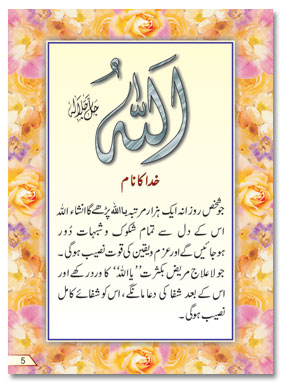 اَللّٰهُ
جل جلالہ
خدا کا نام
جو شخص روزانہ ایک ہزار مرتبہ یا اللہ پڑھے گا انشاء اللہ
اس کے دل سے تمام شکوک و شبہات دُور
ہو جائیں گے اور عزم و یقین کی قوت نصیب ہو گی۔
جو لا علاج مریض بکثرت ”یا اللہ“ کا ورد رکھے اور
اس کے بعد شفا کی دعا مانگے، اس کو شفائے کامل
نصیب ہو گی۔
5